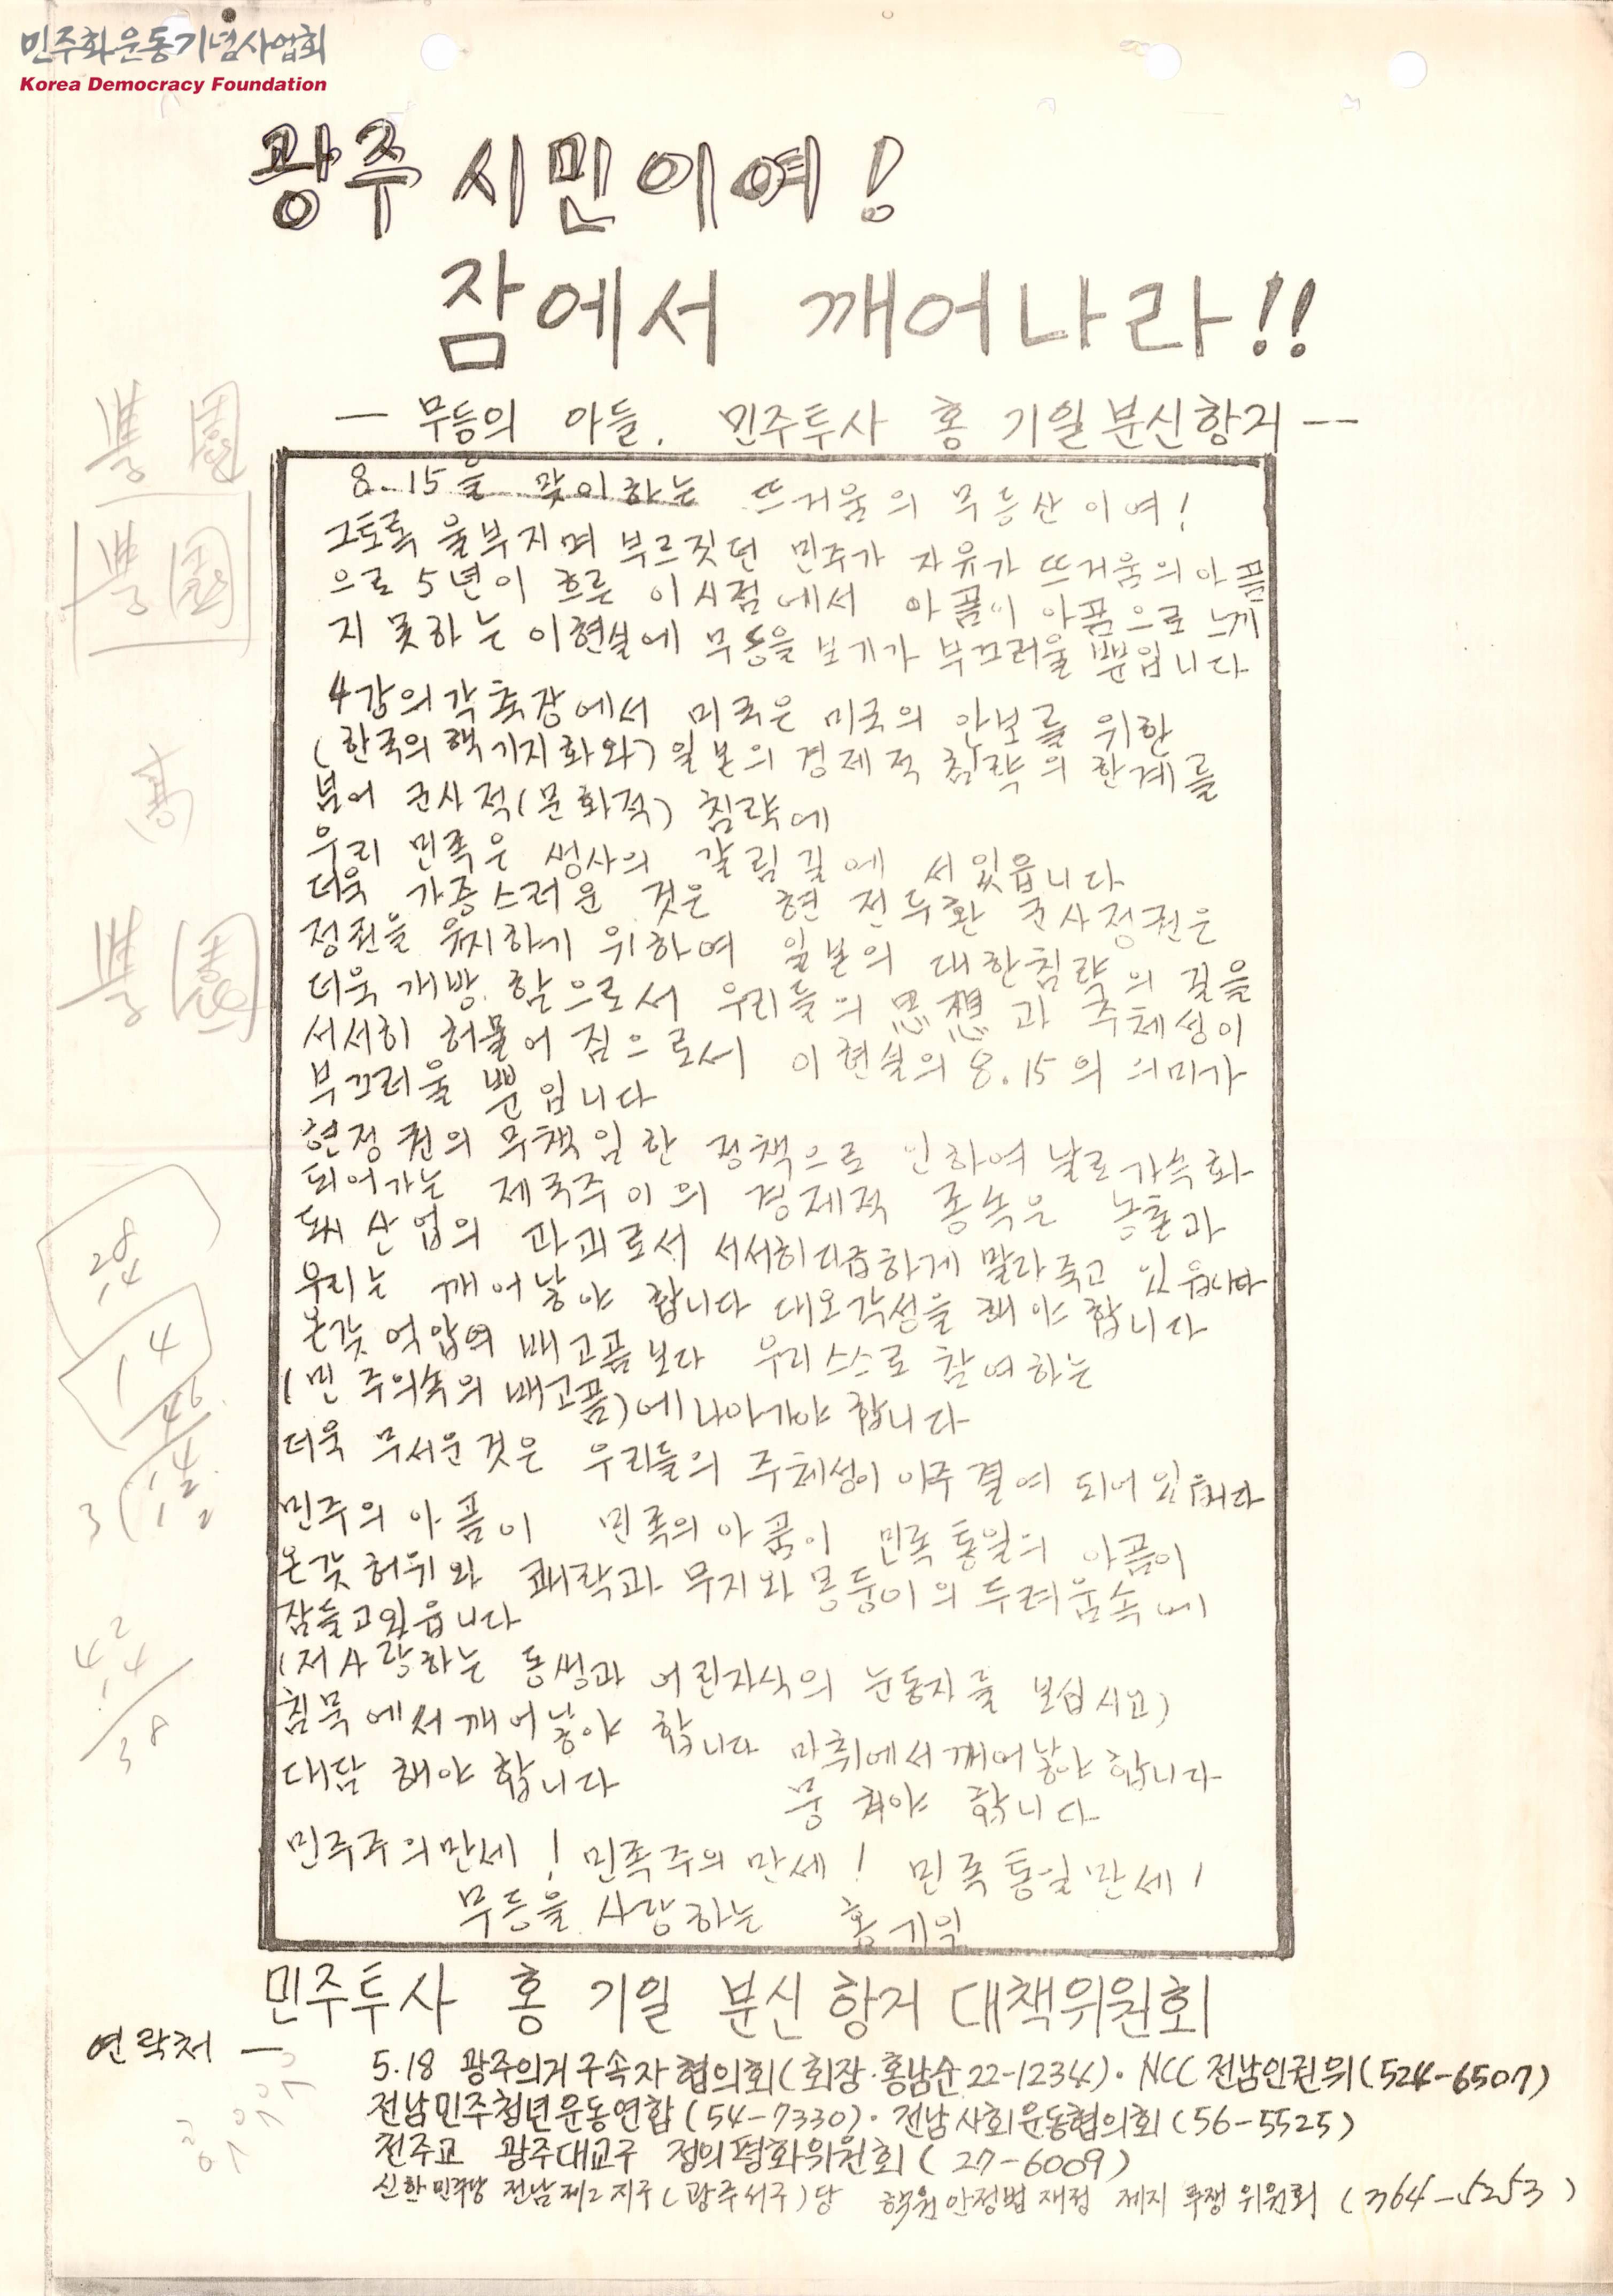 민주화운동기념사업회
Korea Democracy Foundation
광주 시민이여!
잠에서 깨어나라!!
— 무등의 아들. 민주투사 홍 기일 분신항거 --
8.15을 맞이하는 뜨거움의 무등산이여!
그토록 울부지며 부르짓던 민주가 자유가 뜨거움의 아픔
으로 5년이 흐른 이시점에서 아픔이 아픔으로 느끼
지 못하는 이현실에 무등을 보기가 부끄러울 뿐입니다
4강의 각축장에서 미국은 미국의 안보를 위한
(한국의 핵기지화와) 일본의 경제적 침략의 한계를
넘어 군사적(문화적) 침략에
우리 민족은 생사의 갈림길에 서있읍니다
더욱 가증스러운 것은 현 전두환 군사정권은
정권을 유지하기 위하여 일본의 대한침략의 길을
더욱 개방.함으로서 우리들의 思想과 주체성이
서서히 허물어 짐으로서 이현실의 8.15의 의미가
부끄러울 뿐입니다
현정권의 무책임한 정책으로 인하여 날로가속화
되어가는 제국주이의 경제적 종속은 농촌과
도시 산업의 파괴로서 서서히 다급하게 말라죽고 있읍니다
우리는 깨어낳야 합니다 대오각성을 해야 합니다
온갖 억압의 배고픔보다 우리스스로 참여하는
(민주의속의 배고픔)에 나아가야 합니다
더욱 무서운것은 우리들의 주체성이 아주 결여 되어 있읍니다
민주의 아픔이 민족의 아픔이 민족통일의 아픔이
온갖 허위와 쾌락과 무지와 몽둥이의 두려움속에
잠들고있읍니다
(저사랑하는 동생과 어린자식의 눈동자를 보십시요)
침묵에서 깨어낳야 합니다 마취에서 깨어낳야 합니다
대답 해야 합니다 뭉쳐야 합니다
민주주의만세! 민족주의 만세! 민족통일만세!
무등을 사랑하는 홍기일
민주투사 홍 기일 분신 항거 대책위원회
연락처 —
5.18 광주의거 구속자 협의회(회장·홍남순 22-1234). NCC 전남인권위(524-6507)
전남민주청년운동연합(54-7330). 전남사회운동협의회(56-5525)
천주교 광주대교구 정의평화위원회(27-6009)
신한민주당 전남제2지구(광주서구)당 학원안정법 재정 제지 투쟁위원회 (364-5253)
豊園
豊園
豊園
28
14
14
42
38